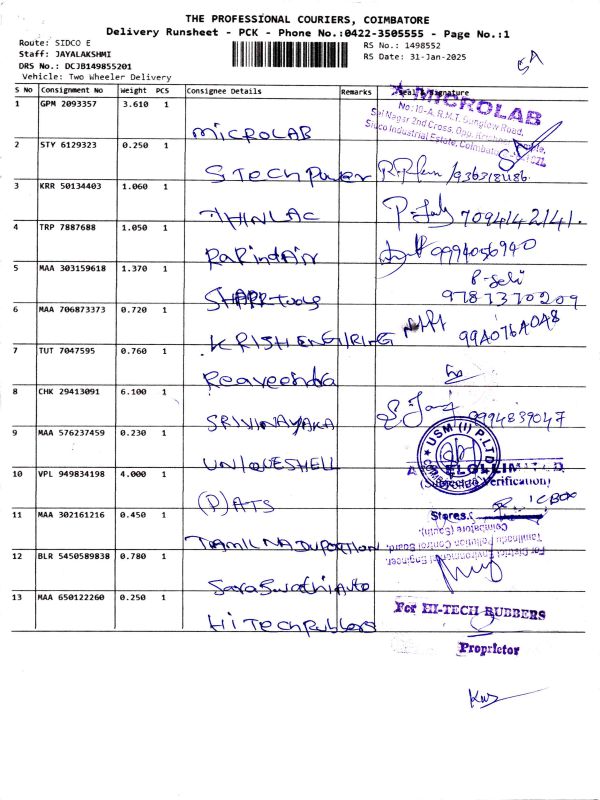 THE PROFESSIONAL COURIERS, COIMBATORE
Delivery Runsheet - PCK - Phone No.:0422-3505555 - Page No.:1
Route: SIDCO E
RS No.: 1498552
Staff: JAYALAKSHMI
RS Date: 31-Jan-2025
DRS No.: DCJB149855201
Vehicle: Two Wheeler Delivery
S No Consignment No Weight PCS Consignee Details Remarks Seal & Signature
1 GPM 2093357 3.610 1 MICROLAB
MICROLAB
No: 10-A, R.M.T. Bunglow Road,
Sai Nagar 2nd Cross, Opp.
Sidco Industrial Estate,
2 STY 6129323 0.250 1 S Tech Power
3 KRR 50134403 1.060 1 THINLAC 7094142141.
4 TRP 7887688 1.050 1 RaPindAir 9994056940
5 MAA 303159618 1.370 1 SHARP tools
P. Seli
9787370209
6 MAA 706873373 0.720 1 KRISH ENGIRING 99A076A0A8
7 TUT 7047595 0.760 1 Reaveendra
8 CHK 29413091 6.100 1 SRIVINAYAKA 9994839047
9 MAA 576237459 0.230 1 UNIQUESHELL
USM (I) P.LTD
10 VPL 949834198 4.000 1 (P) ATS
(Subject to Verification)
Stores.:
ICBOX
11 MAA 302161216 0.450 1 TAMIL NADUPOTION
For District Environmental Engineer
Tamilnadu Pollution Control Board,
Coimbatore (South).
12 BLR 5450589838 0.780 1 Saraswathi Auto
13 MAA 650122260 0.250 1 Hi Tech Rubbers
For HI-TECH RUBBERS
Proprietor